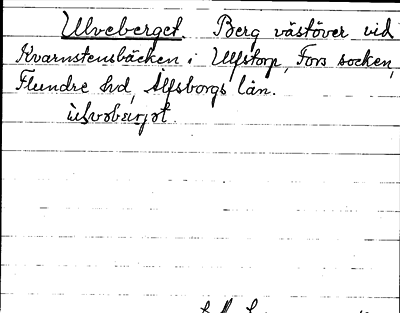 Ulveberget. Berg västöver vid
Kvarnstensbäcken i Ulfstorp, Fors socken,
Flundre hd, Älfsborgs län.